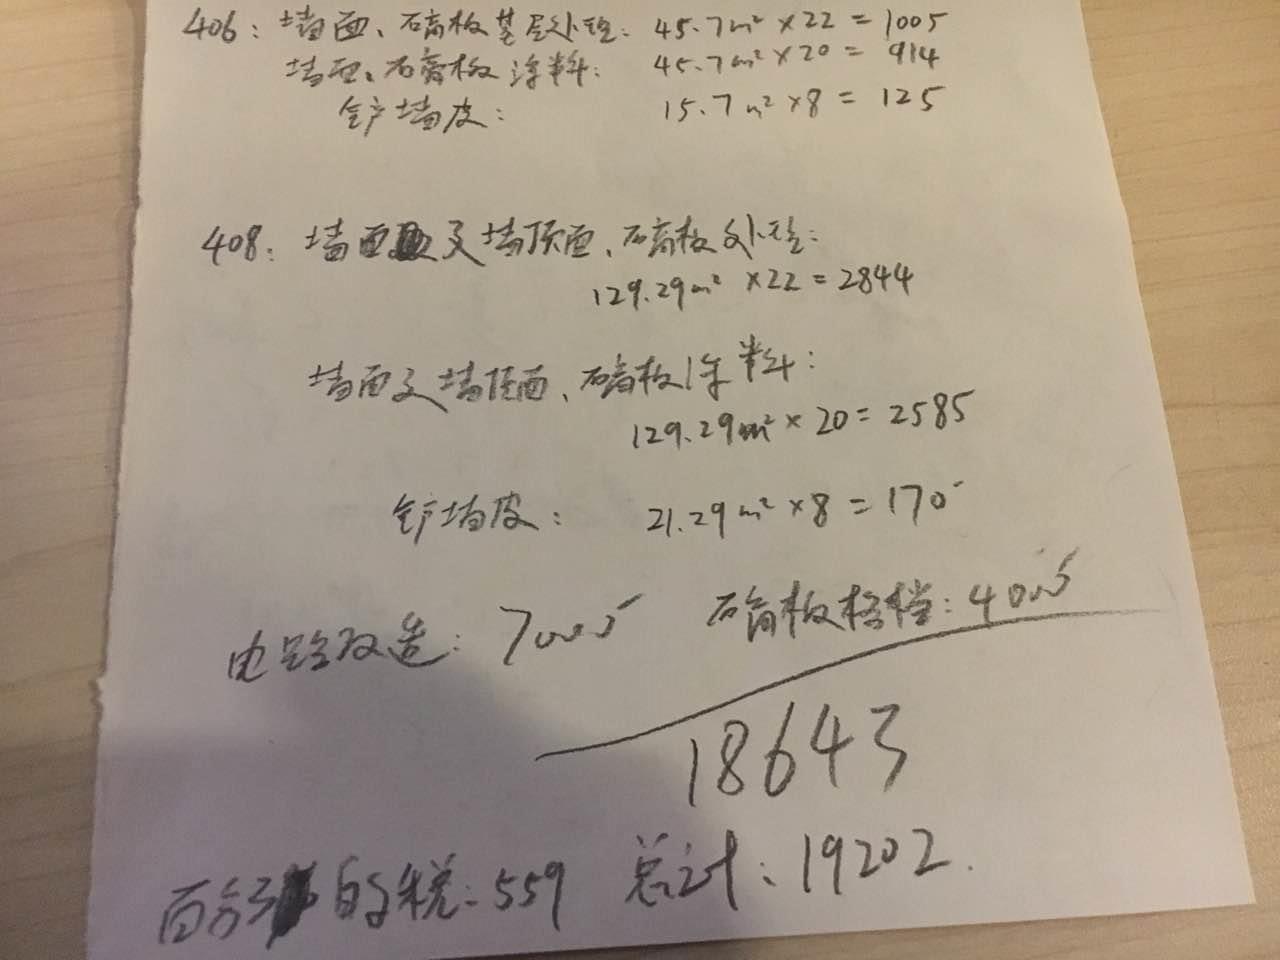 406: 墙面、石膏板基层处理: 45.7m²×22=1005
墙面、石膏板涂料: 45.7m²×20=914
铲墙皮: 15.7m²×8=125
408: 墙面及墙顶面、石膏板处理:
129.29m²×22=2844
墙面及墙顶面、石膏板涂料:
129.29m²×20=2585
铲墙皮: 21.29m²×8=170
电路改造: 7000 石膏板格档: 4000
18643
百分3的税: 559 总计: 19202.